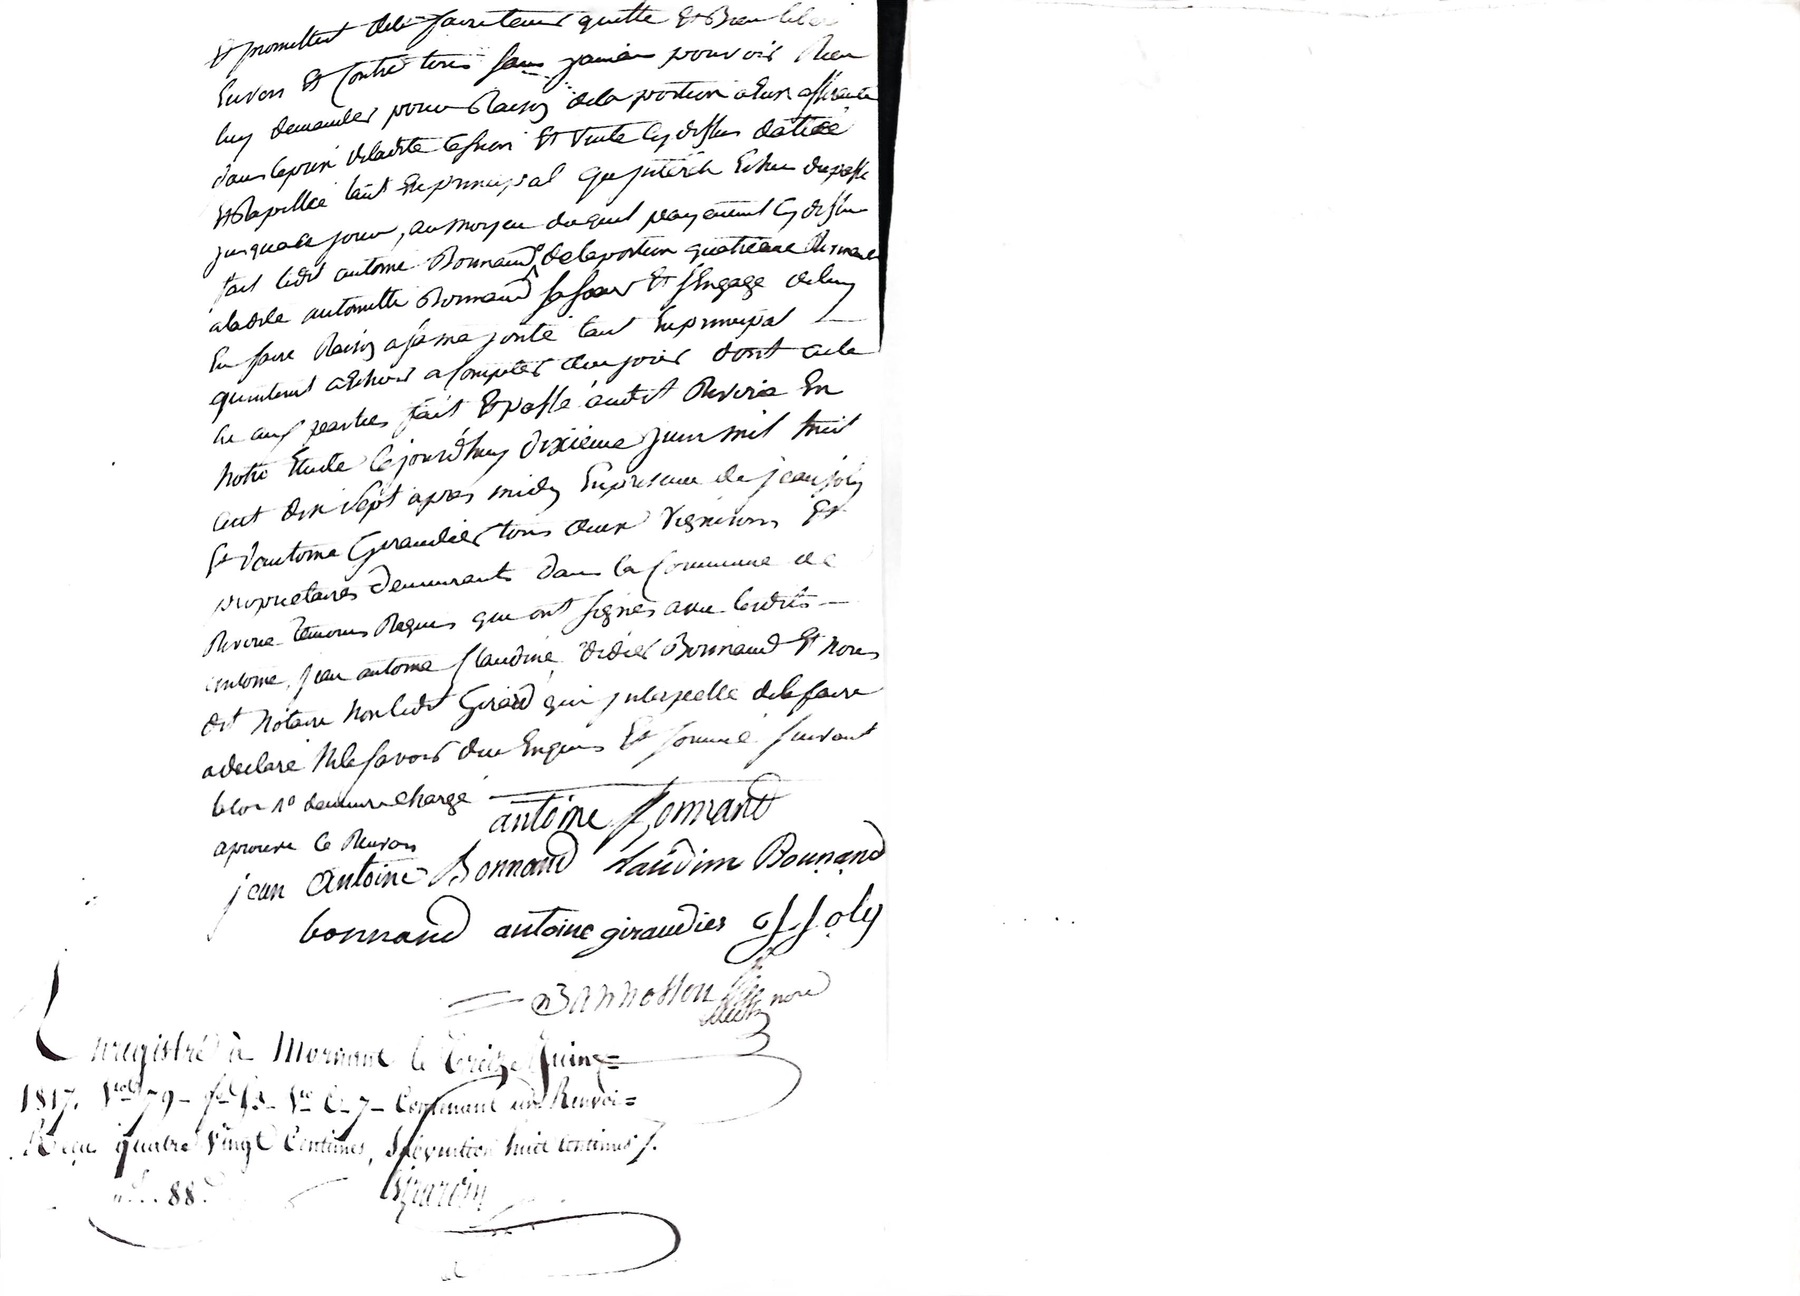 Et promettent de le faire tenir quitte Et Bien libere
Envers Et Contre tous sans jamais pouvoir Rien
luy demander pour Raison de la portion a Eux afferante
dans le prix de ladite Cession Et Vente cy dessus datée
Et Rapellée tant En principal qu'jnterets Echus du passé
jusqua ce jour, au moyen duquel payement cy dessus
fait ledit antoine Bonnand, de la portion quatrieme Revenant
a ladite antoinette Bonnand sa soeur Et s'Engage de luy
En faire Raison tant En principal
qu'interets a Echoir a Compter de ce jour dont acte
aux parties fait Et passé audit Riverie En
notre Etude Cejourd'huy dixieme juin mil huit
cent dix sept apres midy En presence de jean joly
Et d'antoine Giraudier tous deux Vignerons Et
proprietaires demeurants dans la Commune de
Riverie temoins Requis qui ont signés avec lesdits
antoine, jean antoine Claudine, Didier Bonnand Et nous
dit Notaire non ledit Girard qui jnterpellé de le faire
a declaré Ne le savoir de ce Enquis Et sommé suivant
la loi demeure chargé
aprouvé le Renvoi
antoine Bonnand
jean antoine Bonnand Claudine Bonnand
bonnand antoine giraudier Joly
nore
Enregistré à Mornant le treize Juin
1817. Vol 79 fol Vo C. 7 Contenant un Renvoi
Reçu quatre Vingt Centimes, Subvention huit centimes
88.